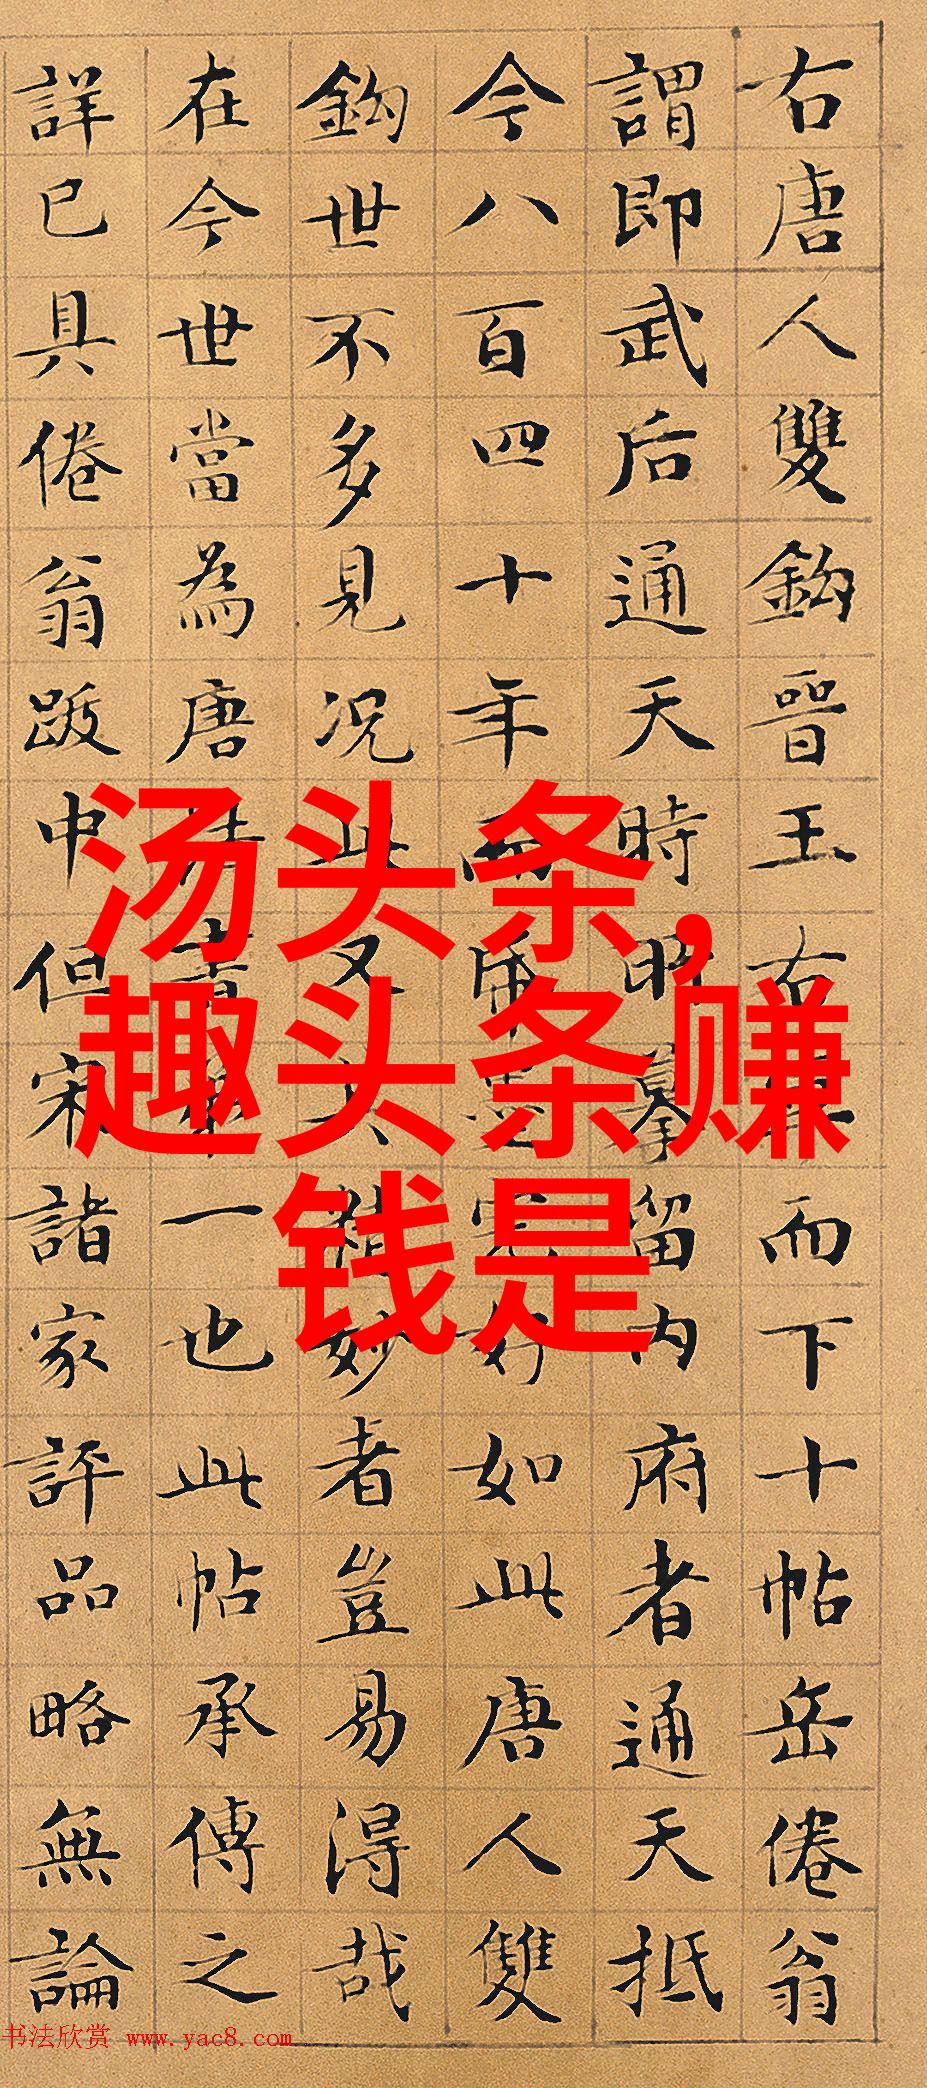 右唐人雙鈎晉王右軍而下十帖岳倦翁
謂即武后通天時昭摹留內府者通天抵
今八百四十年而紙墨完好如此唐人雙
鈎世不多見况此又大精妙者豈易得哉
在今世當為唐法書第一也此帖承傳之
詳已具倦翁跋中但宋諸家評品略無論
汤头条，
趣头条赚
钱是
书法欣赏 www.yac8.com